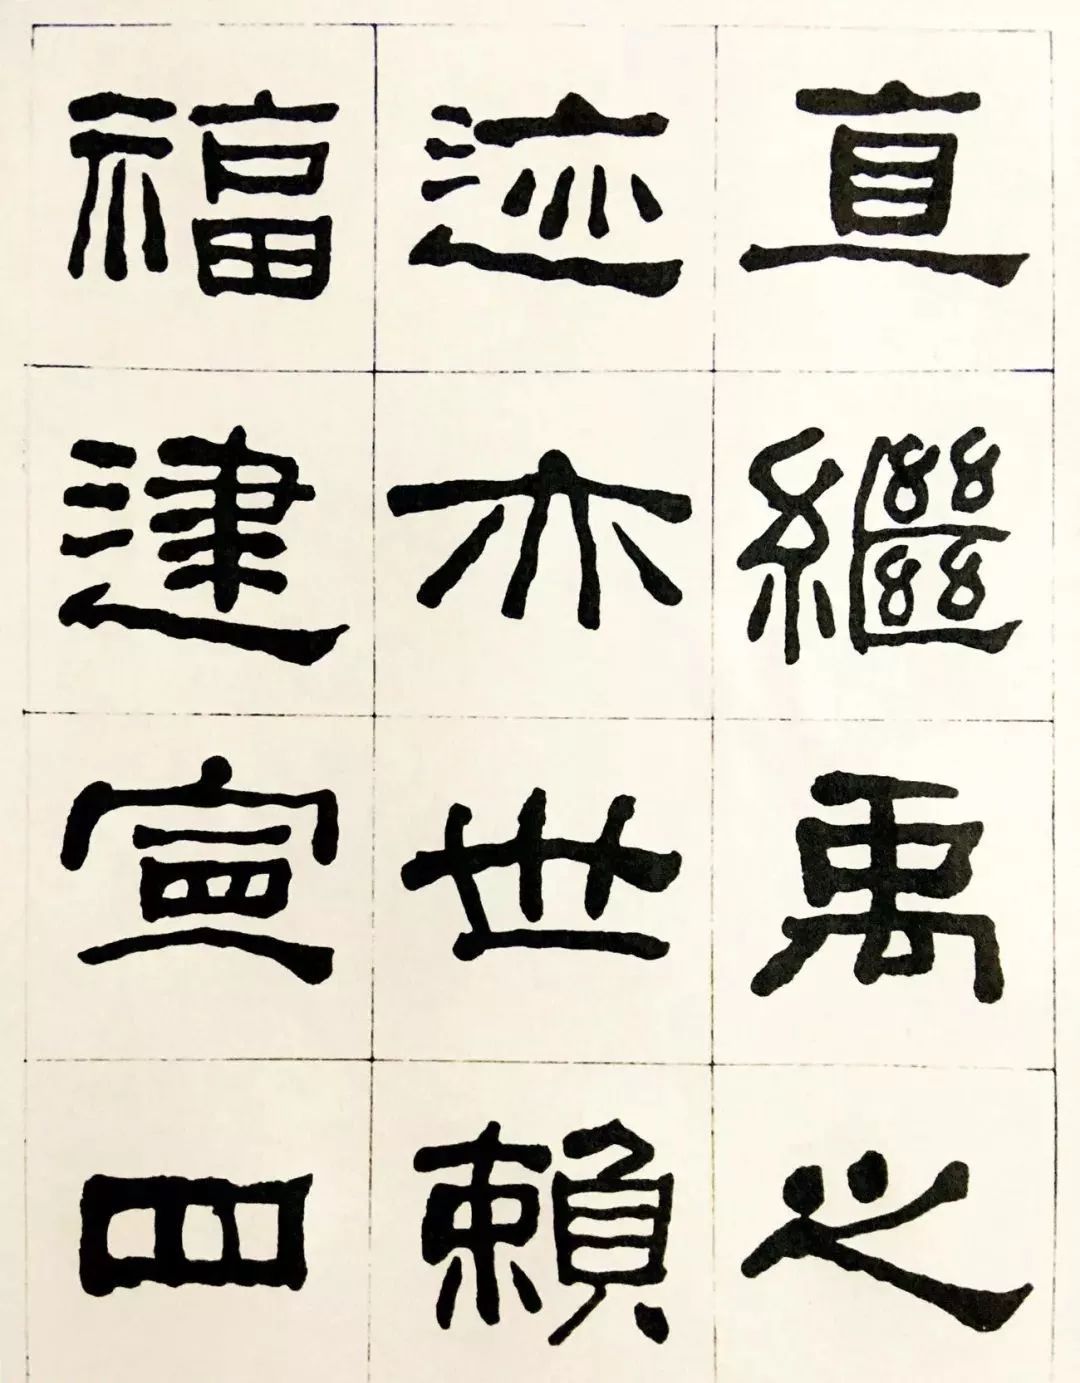 直繼禹之
迹亦世賴
福建宣四